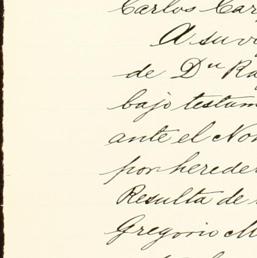 Carlos Car
A su v
de Dn Ra
bajo testam
ante el No
por herede
Resulta de
Gregorio M